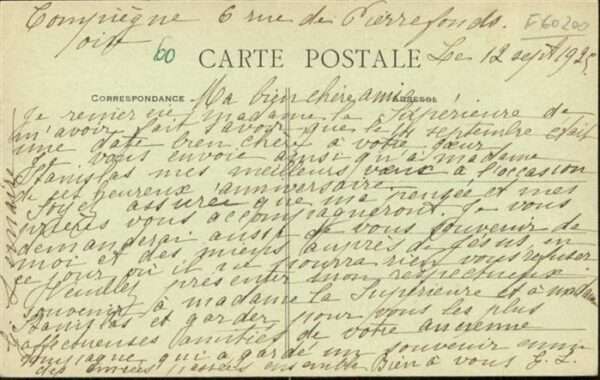 Compiègne 6 rue de Pierrefonds.
Oise
F60200
60
CARTE POSTALE
Le 12 sept 1925
CORRESPONDANCE
ADRESSE
Ma bien chère amie
Je remercie madame la Supérieure de
m'avoir fait savoir que le 14 septembre était
une date bien chère à votre cœur
Je vous envoie ainsi qu'à madame
Stanislas mes meilleurs vœux à l'occasion
de cet heureux anniversaire.
Soyez assurée que ma pensée et mes
prières vous accompagneront. Je vous
demanderai aussi de vous souvenir de
moi et des miens auprès de Jésus, en
ce jour où il ne pourra rien vous refuser
Veuillez présenter mon respectueux
souvenir à madame la Supérieure et à madame
Stanislas et garder pour vous les plus
affectueuses amitiés de votre ancienne
compagne qui a gardé un souvenir ému
des années passées ensemble Bien à vous